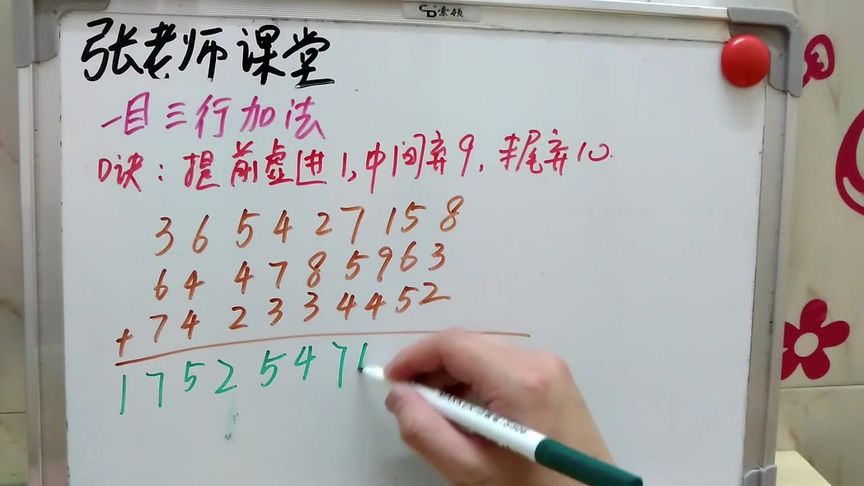 索顿
张老师课堂
一目三行加法
口诀：提前虚进1,中间弃9,末尾弃10.
3 6 5 4 2 7 1 5 8
6 4 4 7 8 5 9 6 3
+ 7 4 2 3 3 4 4 5 2
1 7 5 2 5 4 7 1